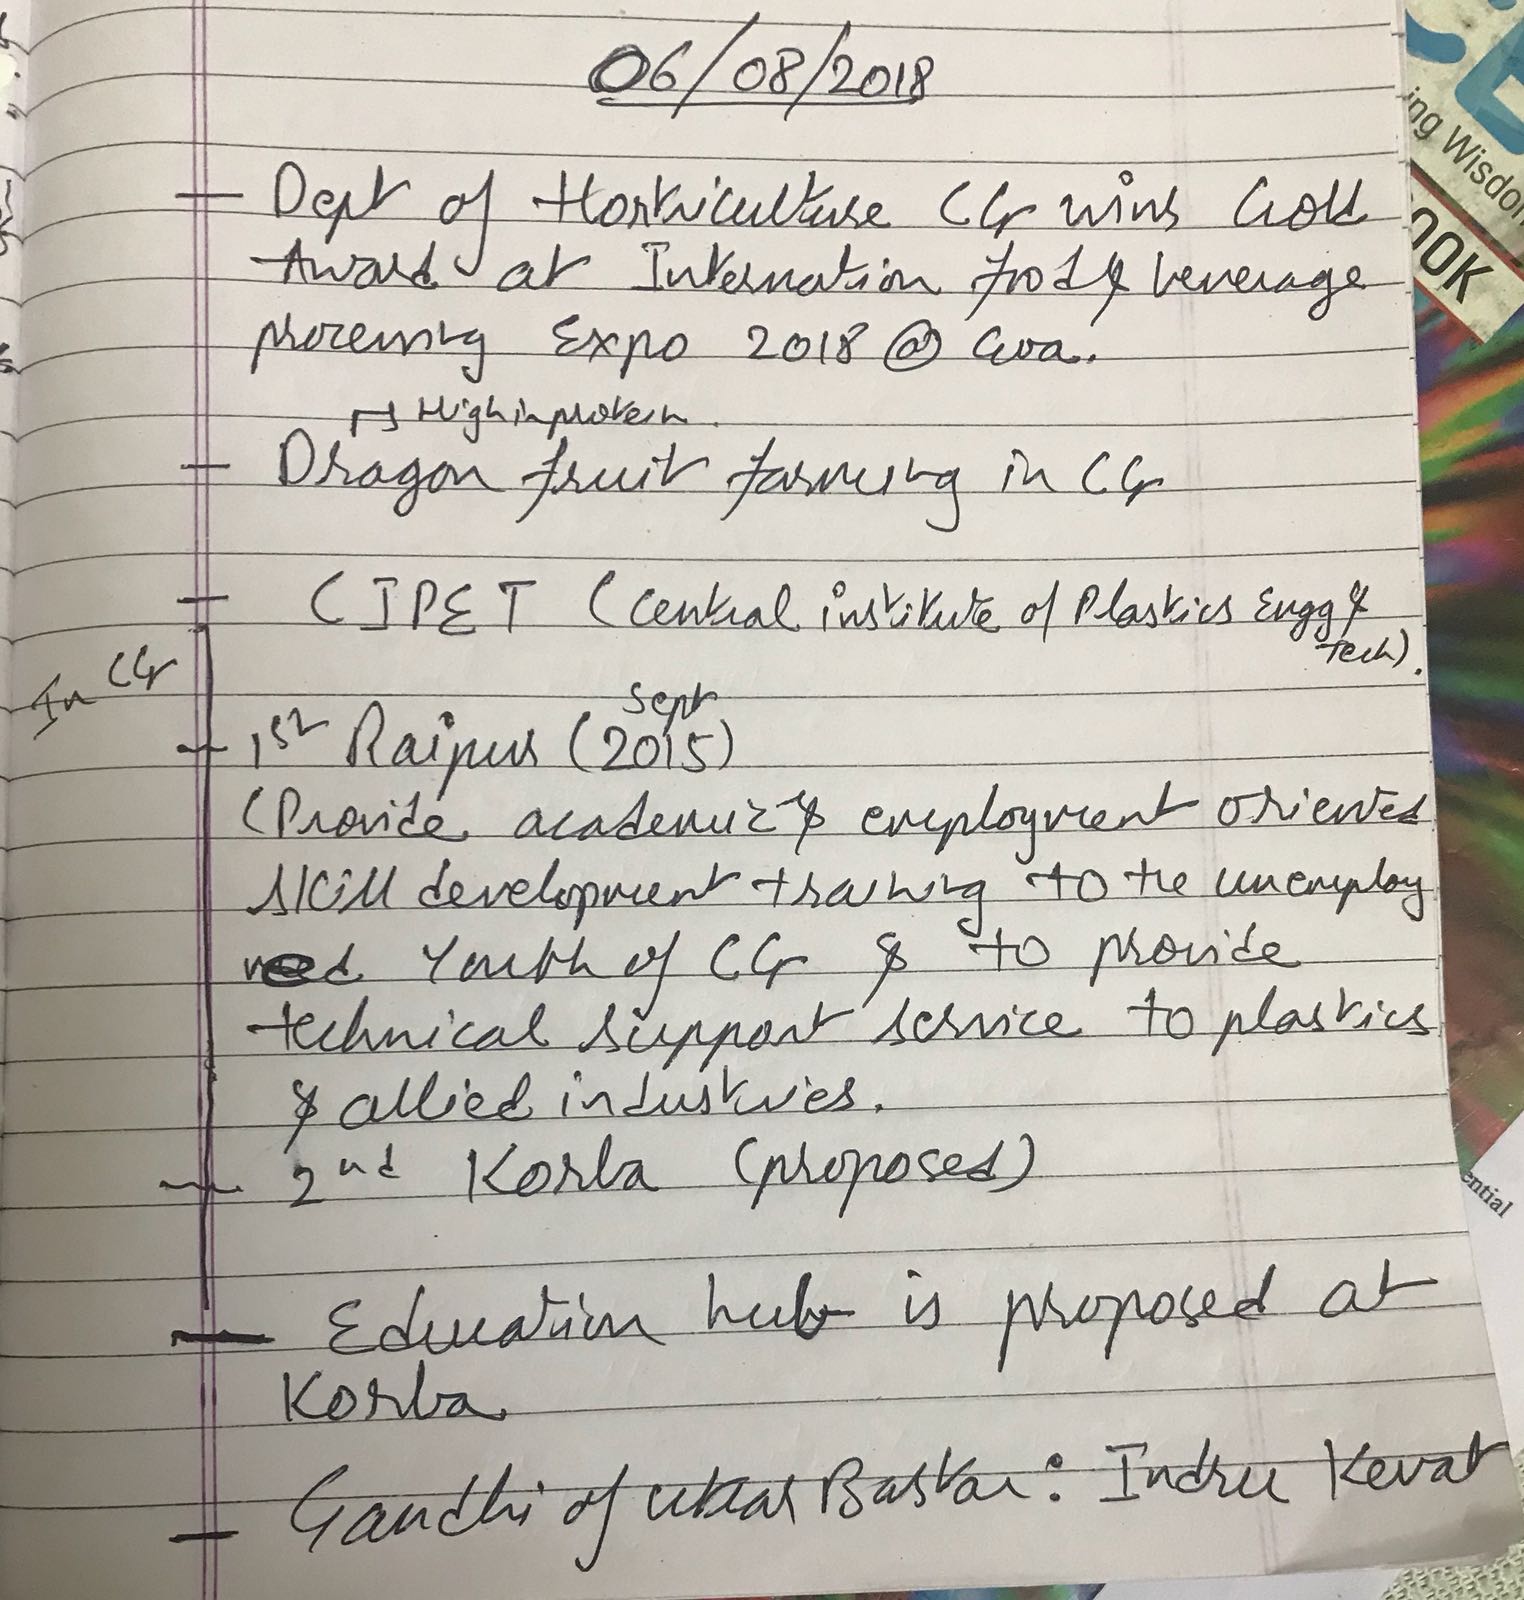 06/08/2018
- Dept of Horticulture CG wins Gold
Award at Internation food & beverage
processing Expo 2018 @ Goa.
↱ High in protein.
- Dragon fruit farming in CG
- CIPET (Central institute of Plastics Engg &
Tech).
In CG
Sept
- 1st Raipur (2015)
(Provide academic & employment oriented
skill development training to the unemploy
ed Youth of CG & to provide
technical support service to plastics
& allied industries.
- 2nd Korba (proposed)
- Education hub is proposed at
Korba
- Gandhi of Bastar: Indru Kevat
ing Wisdom
OOK
ential